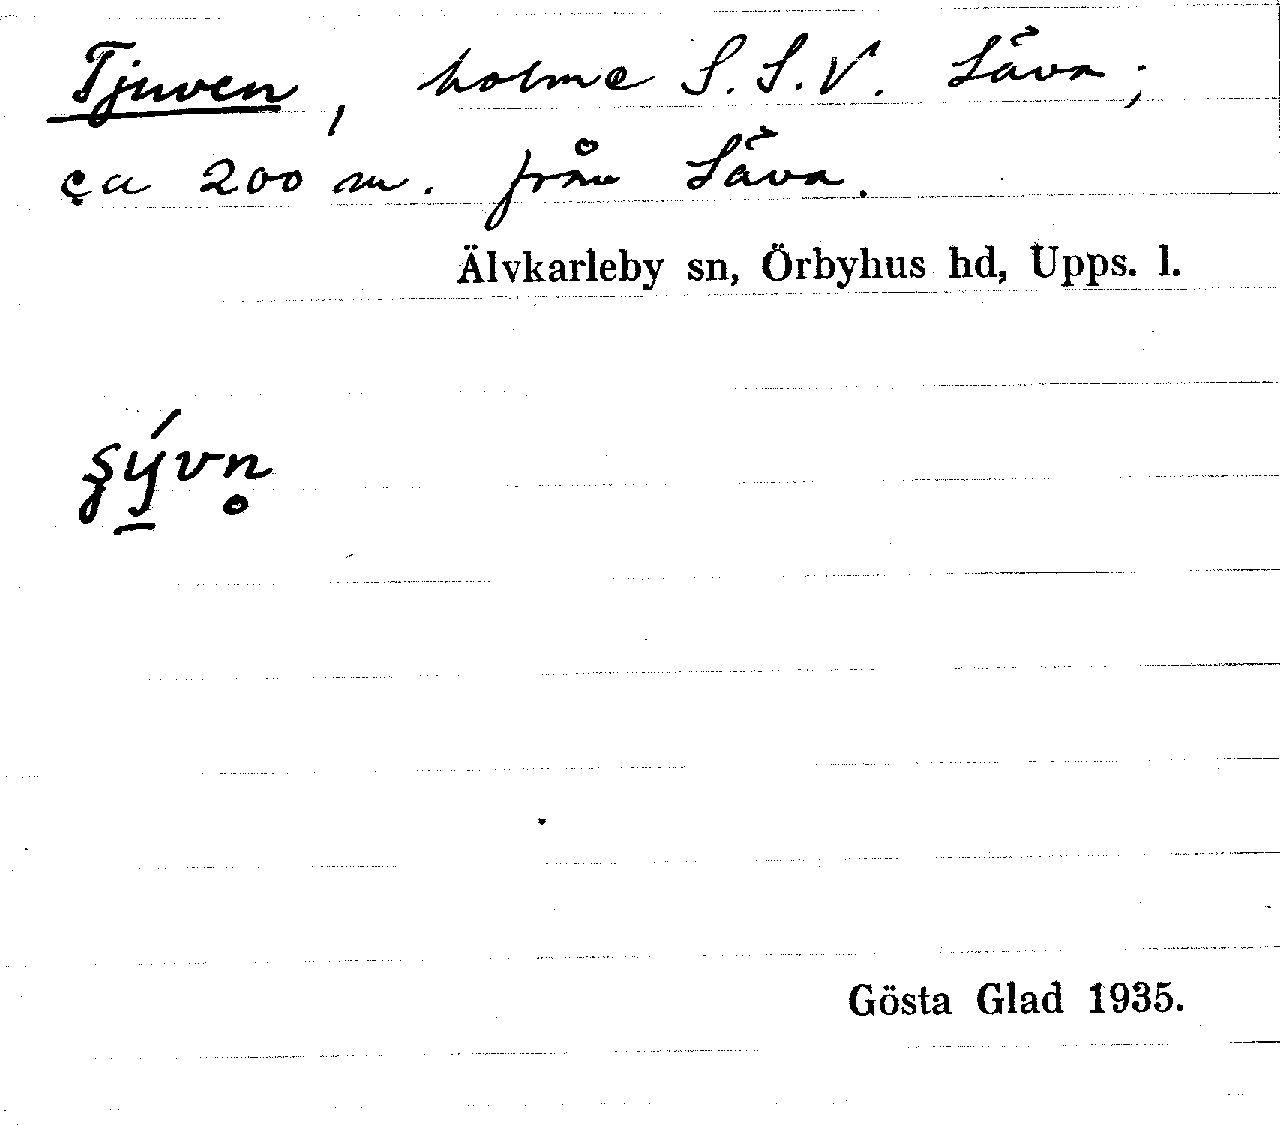 Tjuven, holme S.S.V. Såva;
ca 200 m. från Såva.
Älvkarleby sn, Örbyhus hd, Upps. l.
Gösta Glad 1935.